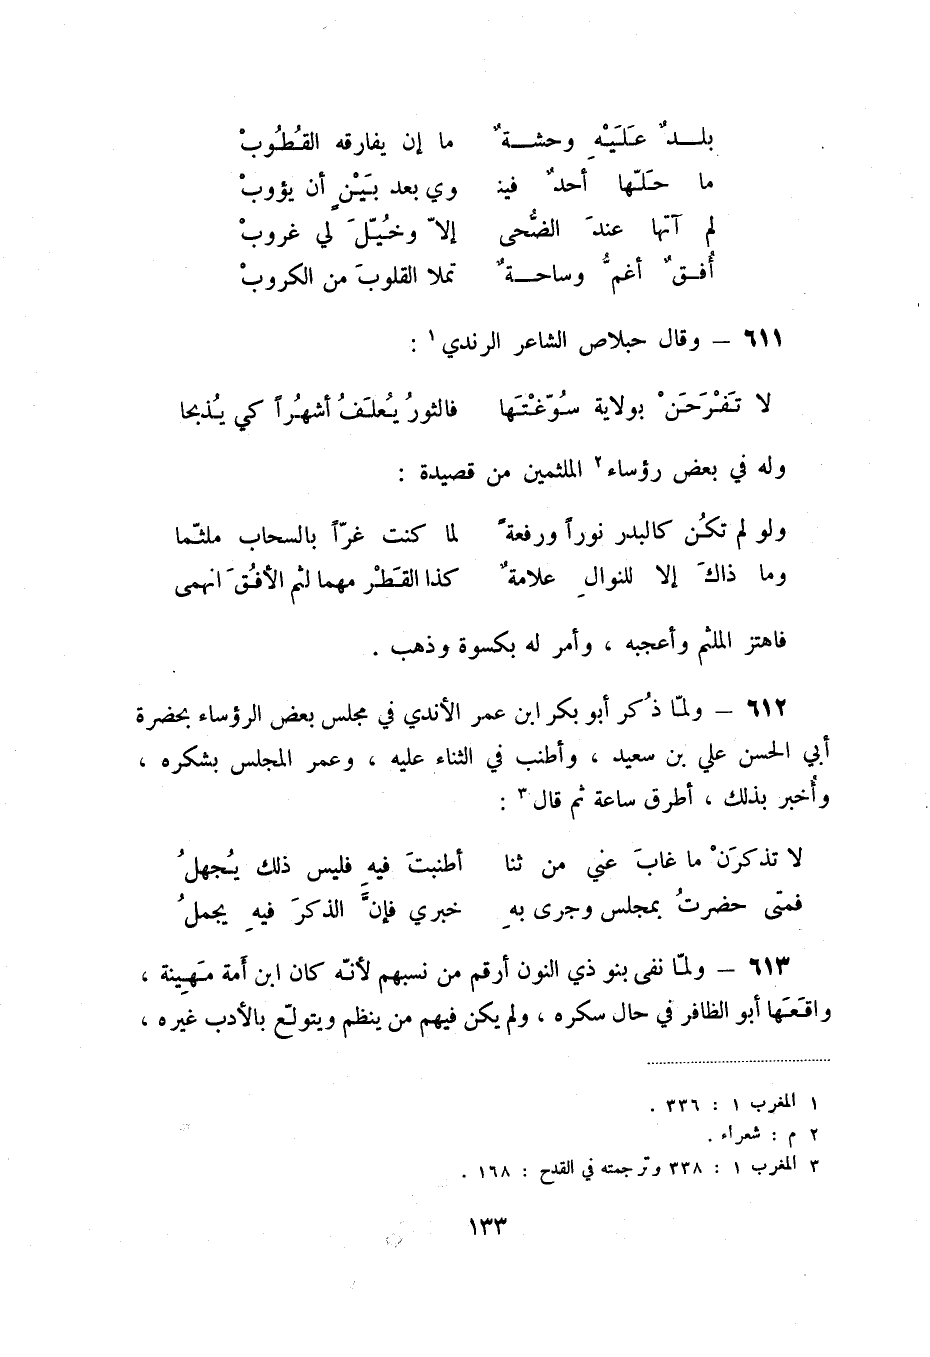 بلــدٌ عَلَيْهِ وحشــةٌ ما إن يفارقه القُطُوبْ
ما حَلّها أحدٌ فينـ ـوي بعد بَيْنٍ أن يؤوبْ
لم آتها عندَ الضُّحى إلاّ وخُيّلَ لي غروبْ
أُفــقٌ أغمُّ وساحــةٌ تملا القلوبَ من الكروبْ
٦١١ – وقال حبلاص الشاعر الرندي ١ :
لا تَفْرَحَنْ بولاية سُوّغْتَها فالثورُ يُعلَفُ أشهُراً كي يُذبحا
وله في بعض رؤساء ٢ الملثمين من قصيدة :
ولو لم تكُن كالبدر نوراً ورفعةً لما كنت غرّاً بالسحاب ملثّما
وما ذاكَ إلا للنوالِ علامةٌ كذا القَطْر مهما لثم الأفُقَ انهمى
فاهتز الملثم وأعجبه ، وأمر له بكسوة وذهب .
٦١٢ – ولمّا ذُكر أبو بكر ابن عمر الأندي في مجلس بعض الرؤساء بحضرة
أبي الحسن علي بن سعيد ، وأطنب في الثناء عليه ، وعمر المجلس بشكره ،
وأُخبر بذلك ، أطرق ساعة ثم قال ٣ :
لا تذكرَنْ ما غابَ عني من ثنا أطنبتَ فيهِ فليس ذلك يُجهلُ
فمتى حضرتُ بمجلس وجرى بهِ خبري فإنَّ الذكرَ فيهِ يجملُ
٦١٣ – ولمّا نفى بنو ذي النون أرقم من نسبهم لأنّه كان ابن أمة مَهِينة ،
واقَعَها أبو الظافر في حال سكره ، ولم يكن فيهم من ينظم ويتولّع بالأدب غيره ،
١ المغرب ١ : ٣٣٦ .
٢ م : شعراء .
٣ المغرب ١ : ٣٣٨ وترجمته في القدح : ١٦٨ .
١٣٣